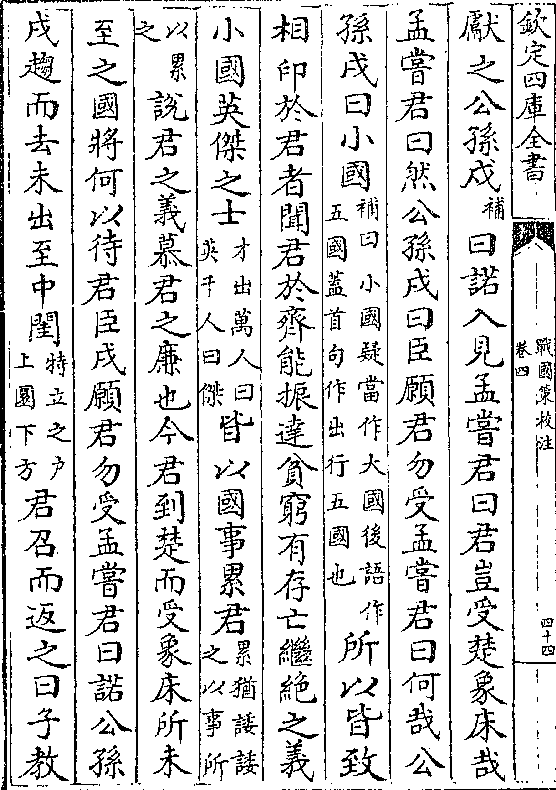 欽定四庫全書
戰國策校注
卷四
四十四
獻之公孫戍補曰諾入見孟嘗君曰君豈受楚象床哉
孟嘗君曰然公孫戍曰臣願君勿受孟嘗君曰何哉公
孫戍曰小國補曰小國疑當作大國後語作五國蓋首句作出行五國也所以皆致
相印於君者聞君於齊能振達貧窮有存亡繼絶之義
小國英傑之士才出萬人曰英千人曰傑皆以國事累君累猶諉諉之以事所
以累之說君之義慕君之廉也今君到楚而受象床所未
至之國將何以待君臣戍願君勿受孟嘗君曰諾公孫
戍趨而去未出至中閨特立之户上圜下方君召而返之曰子教